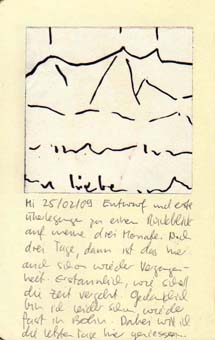 liebe
Mi 25/02/09 Entwurf und erste
Überlegungen zu einem Rückblick
auf meine drei Monate. Noch
drei Tage, dann ist das hier
auch schon wieder Vergangen-
heit. Erstaunlich, wie schnell
die Zeit vergeht. Gedanklich
bin ich leider schon wieder
fast in Berlin. Dabei will ich
die letzten Tage hier geniessen.